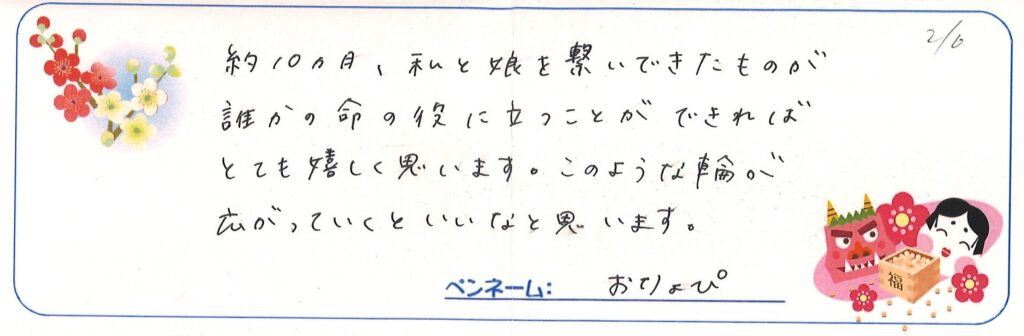 2/6
約10ヵ月、私と娘を繋いできたものが
誰かの命の役に立つことができれば
とても嬉しく思います。このような輪が
広がっていくといいなと思います。
ペンネーム: おりょぴ
福